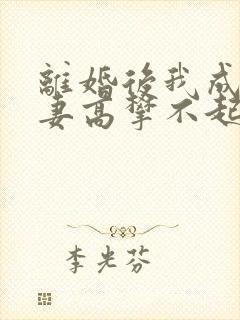 離婚後我成
妻高攀不起
李光芬